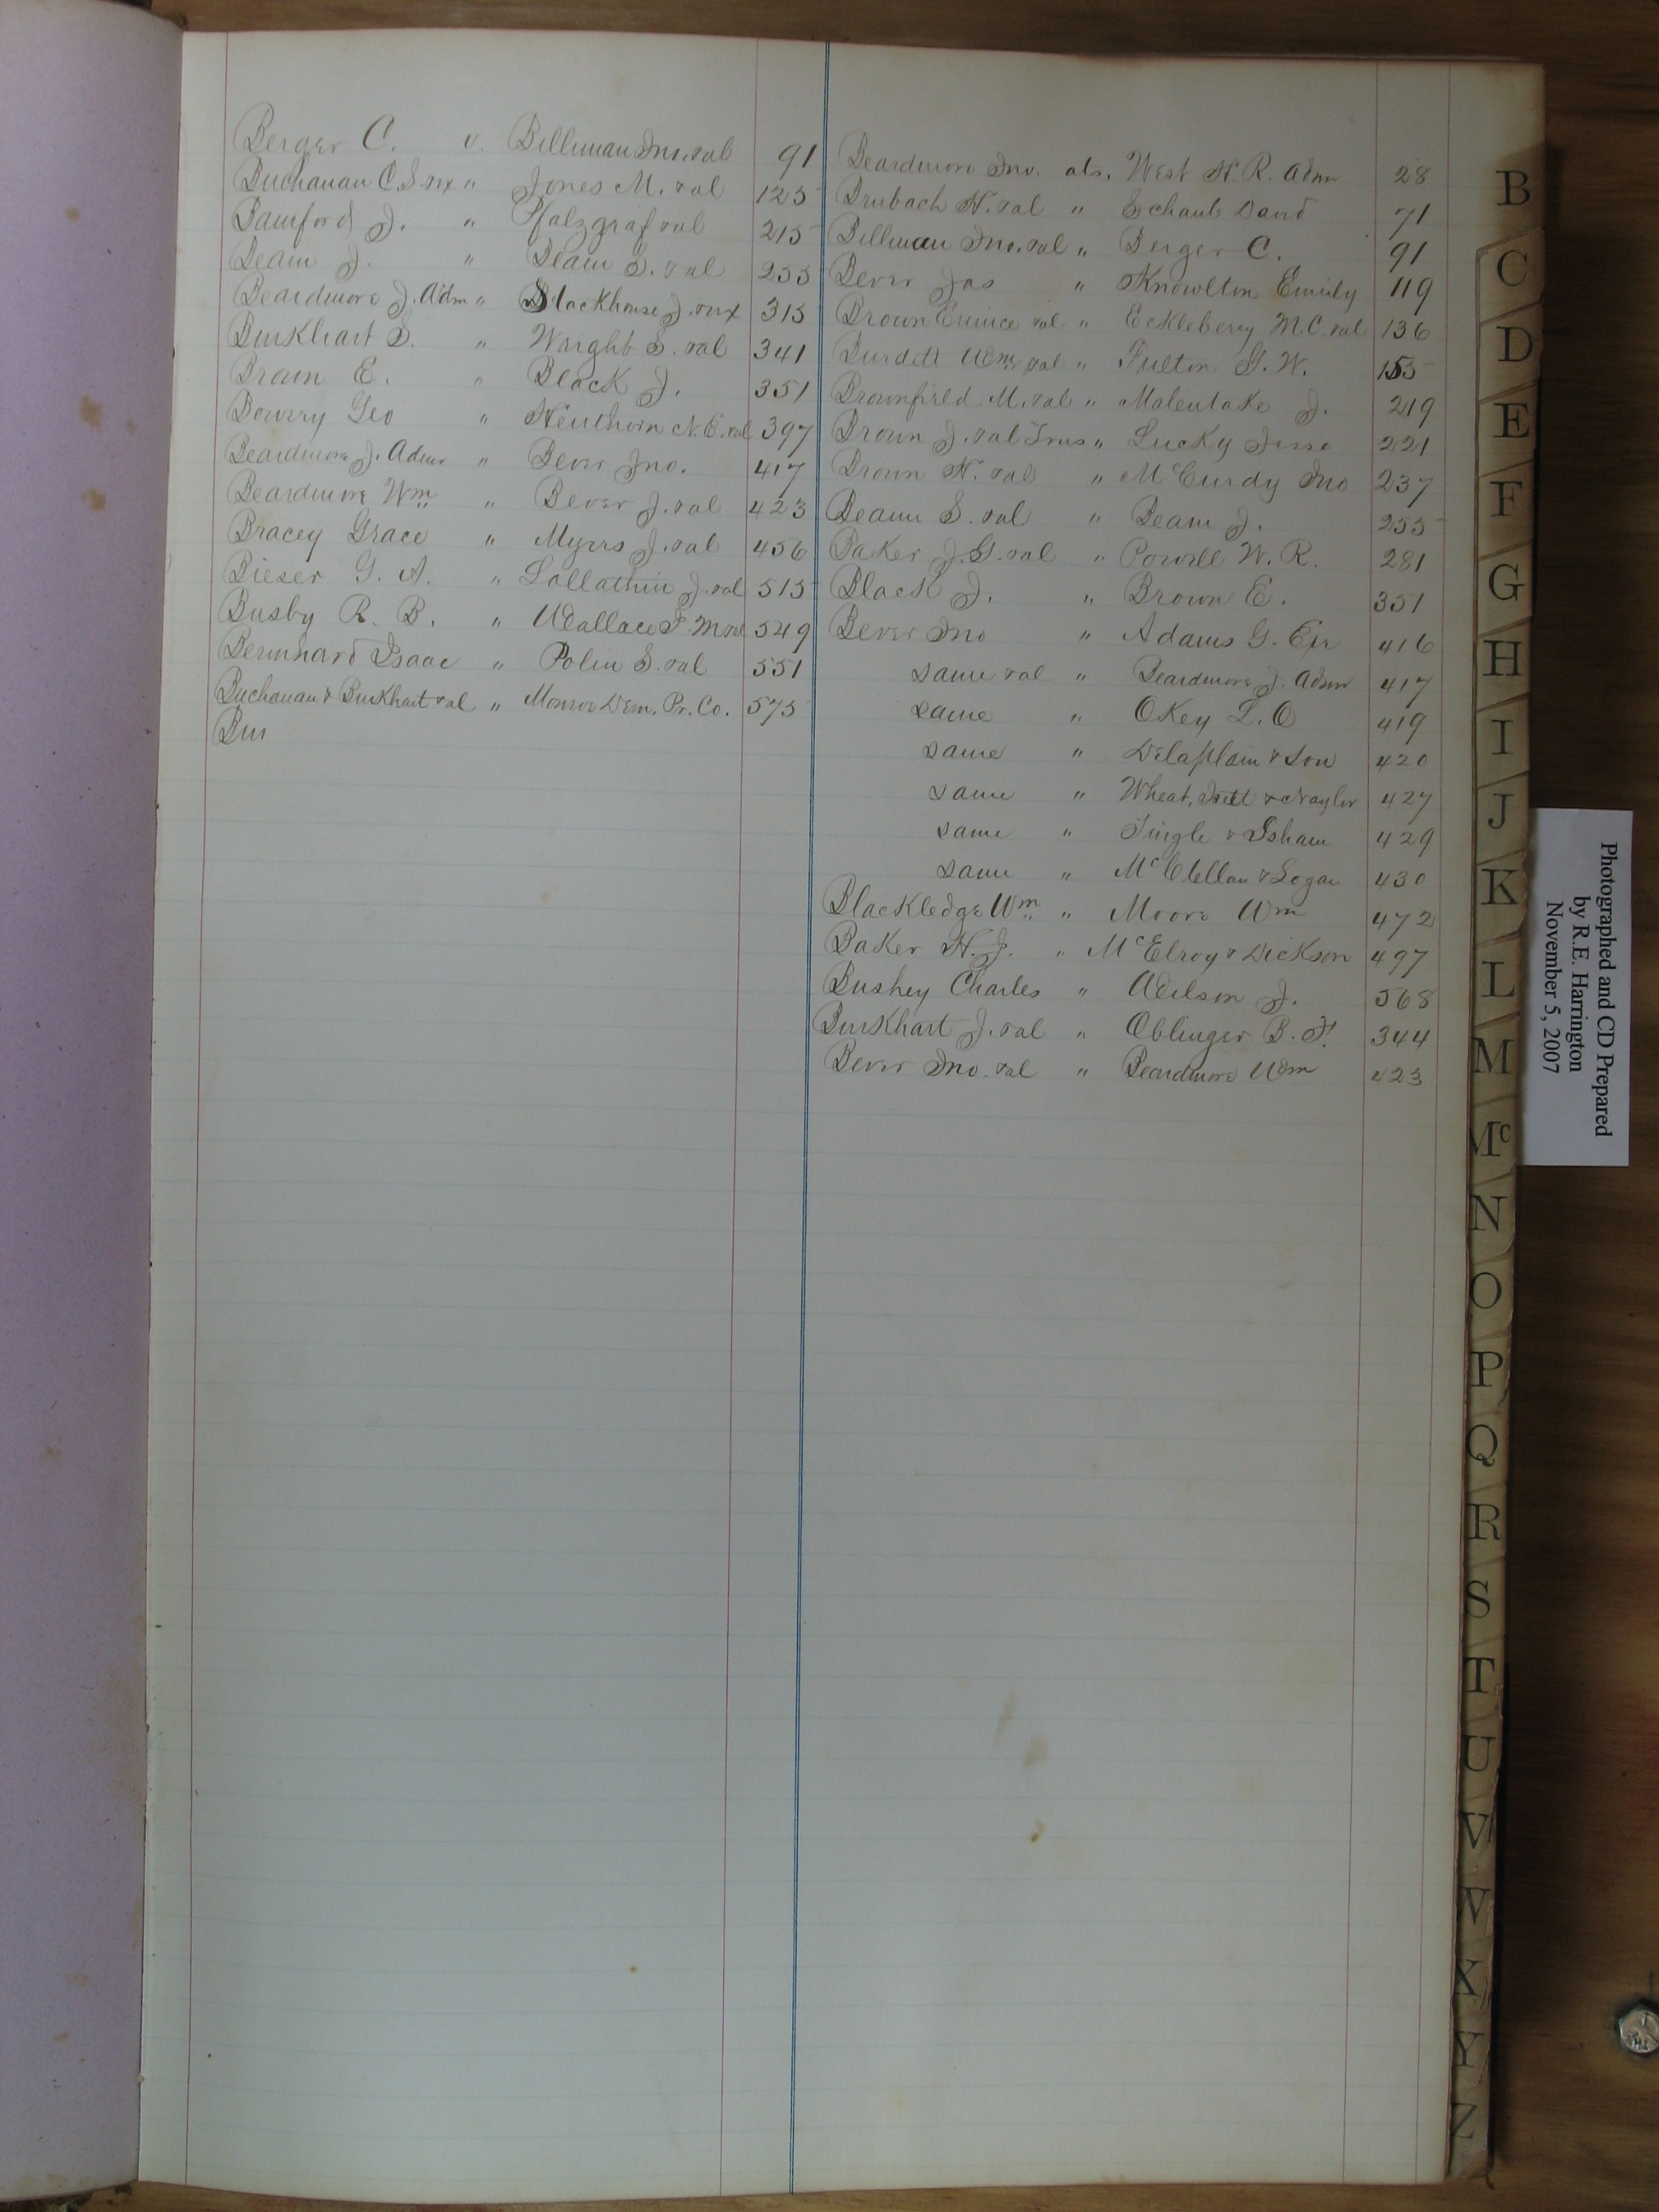 Berger C. v. Billman Jno. et al 91
Buchanan C.S. et ux " Jones M. et al 125
Bamford J. " Pfalzgraf et al 215
Beam J. " Beam S. et al 255
Beardmore J. Adm " Stackhouse J. et ux 315
Burkhart S. " Wright S. et al 341
Brown E. " Black J. 351
Bowry Geo " N.E. et al 397
Beardmore J. Admr " Bever Jno. 417
Beardmore Wm " Bever J. et al 423
Bracey Grace " Myers J. et al 456
Bieser G. A. " Lallathin J. et al 515
Busby R. B. " Wallace F. M et al 549
Bernhard Isaac " Polin S. et al 551
Buchanan & Burkhart et al " Monroe Dem. Pr. Co. 575
Bur
Beardmore Jno. ats. West H. R. Admr 28
Brubach H. et al " Schaub David 71
Billman Jno. et al " Berger C. 91
Bever Jas " Knowlton Emily 119
Brown Eunice et al " Eckleberry M.C. et al 136
Burdett Wm et al " Fulton G. W. 155
Brownfield M. et al " J. 219
Brown J. et al Trus " Lucky Jesse 221
Brown H. et al " McCurdy Jno 237
Beam S. et al " Beam J. 255
Baker J. G. et al " Powell W. R. 281
Black J. " Brown E. 351
Bever Jno " Adams G. Exr 416
same et al " Beardmore J. Admr 417
same " Okey L. O 419
same " Delaplain & Son 420
same " Wheat, & Naylor 427
same " Tingle & Isham 429
same " McClellan & Logan 430
Blackledge Wm " Moore Wm 472
Baker H. J. " McElroy & Dickson 497
Bushey Charles " Wilson J. 568
Burkhart J. et al " Oblinger B. F. 344
Bever Jno. et al " Beardmore Wm 423
B
C
D
E
F
G
H
I
J
K
L
M
Mc
N
O
P
Q
R
S
T
U
V
W
X
Y
Z
Photographed and CD Prepared
by R.E. Harrington
November 5, 2007